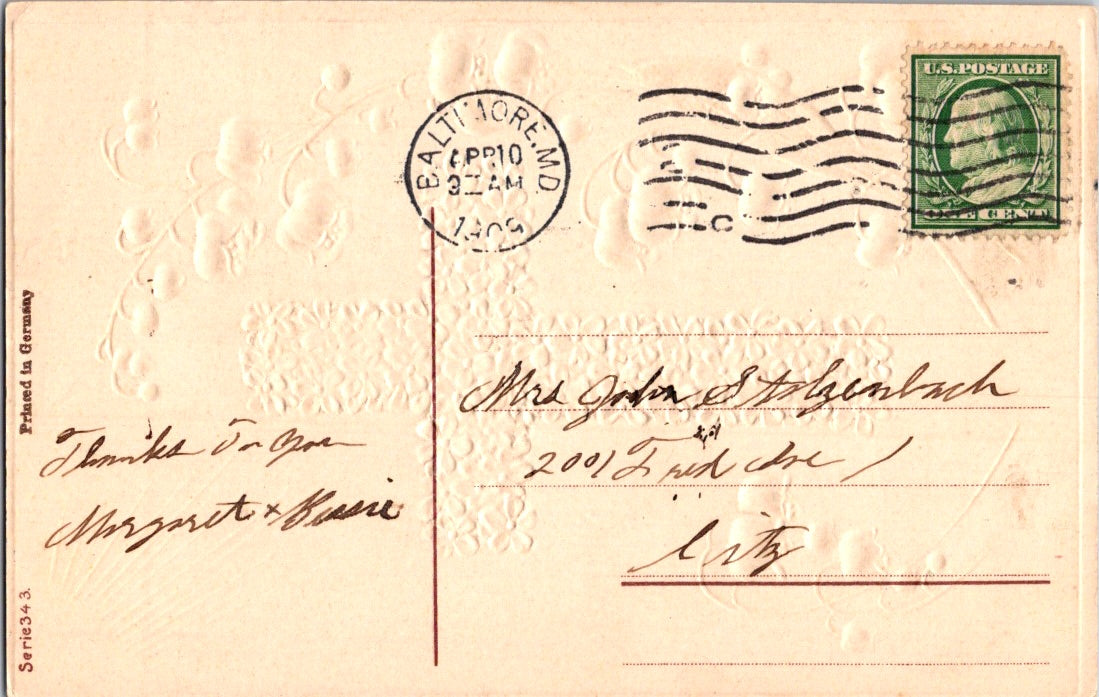 U.S. POSTAGE
ONE CENT
BALTIMORE, MD.
APR 10
AM
1909
C
Printed in Germany
Mrs John Stolzenbach
2001 Fred Ave
City
Thanks To you
Margaret +
Serie 343.